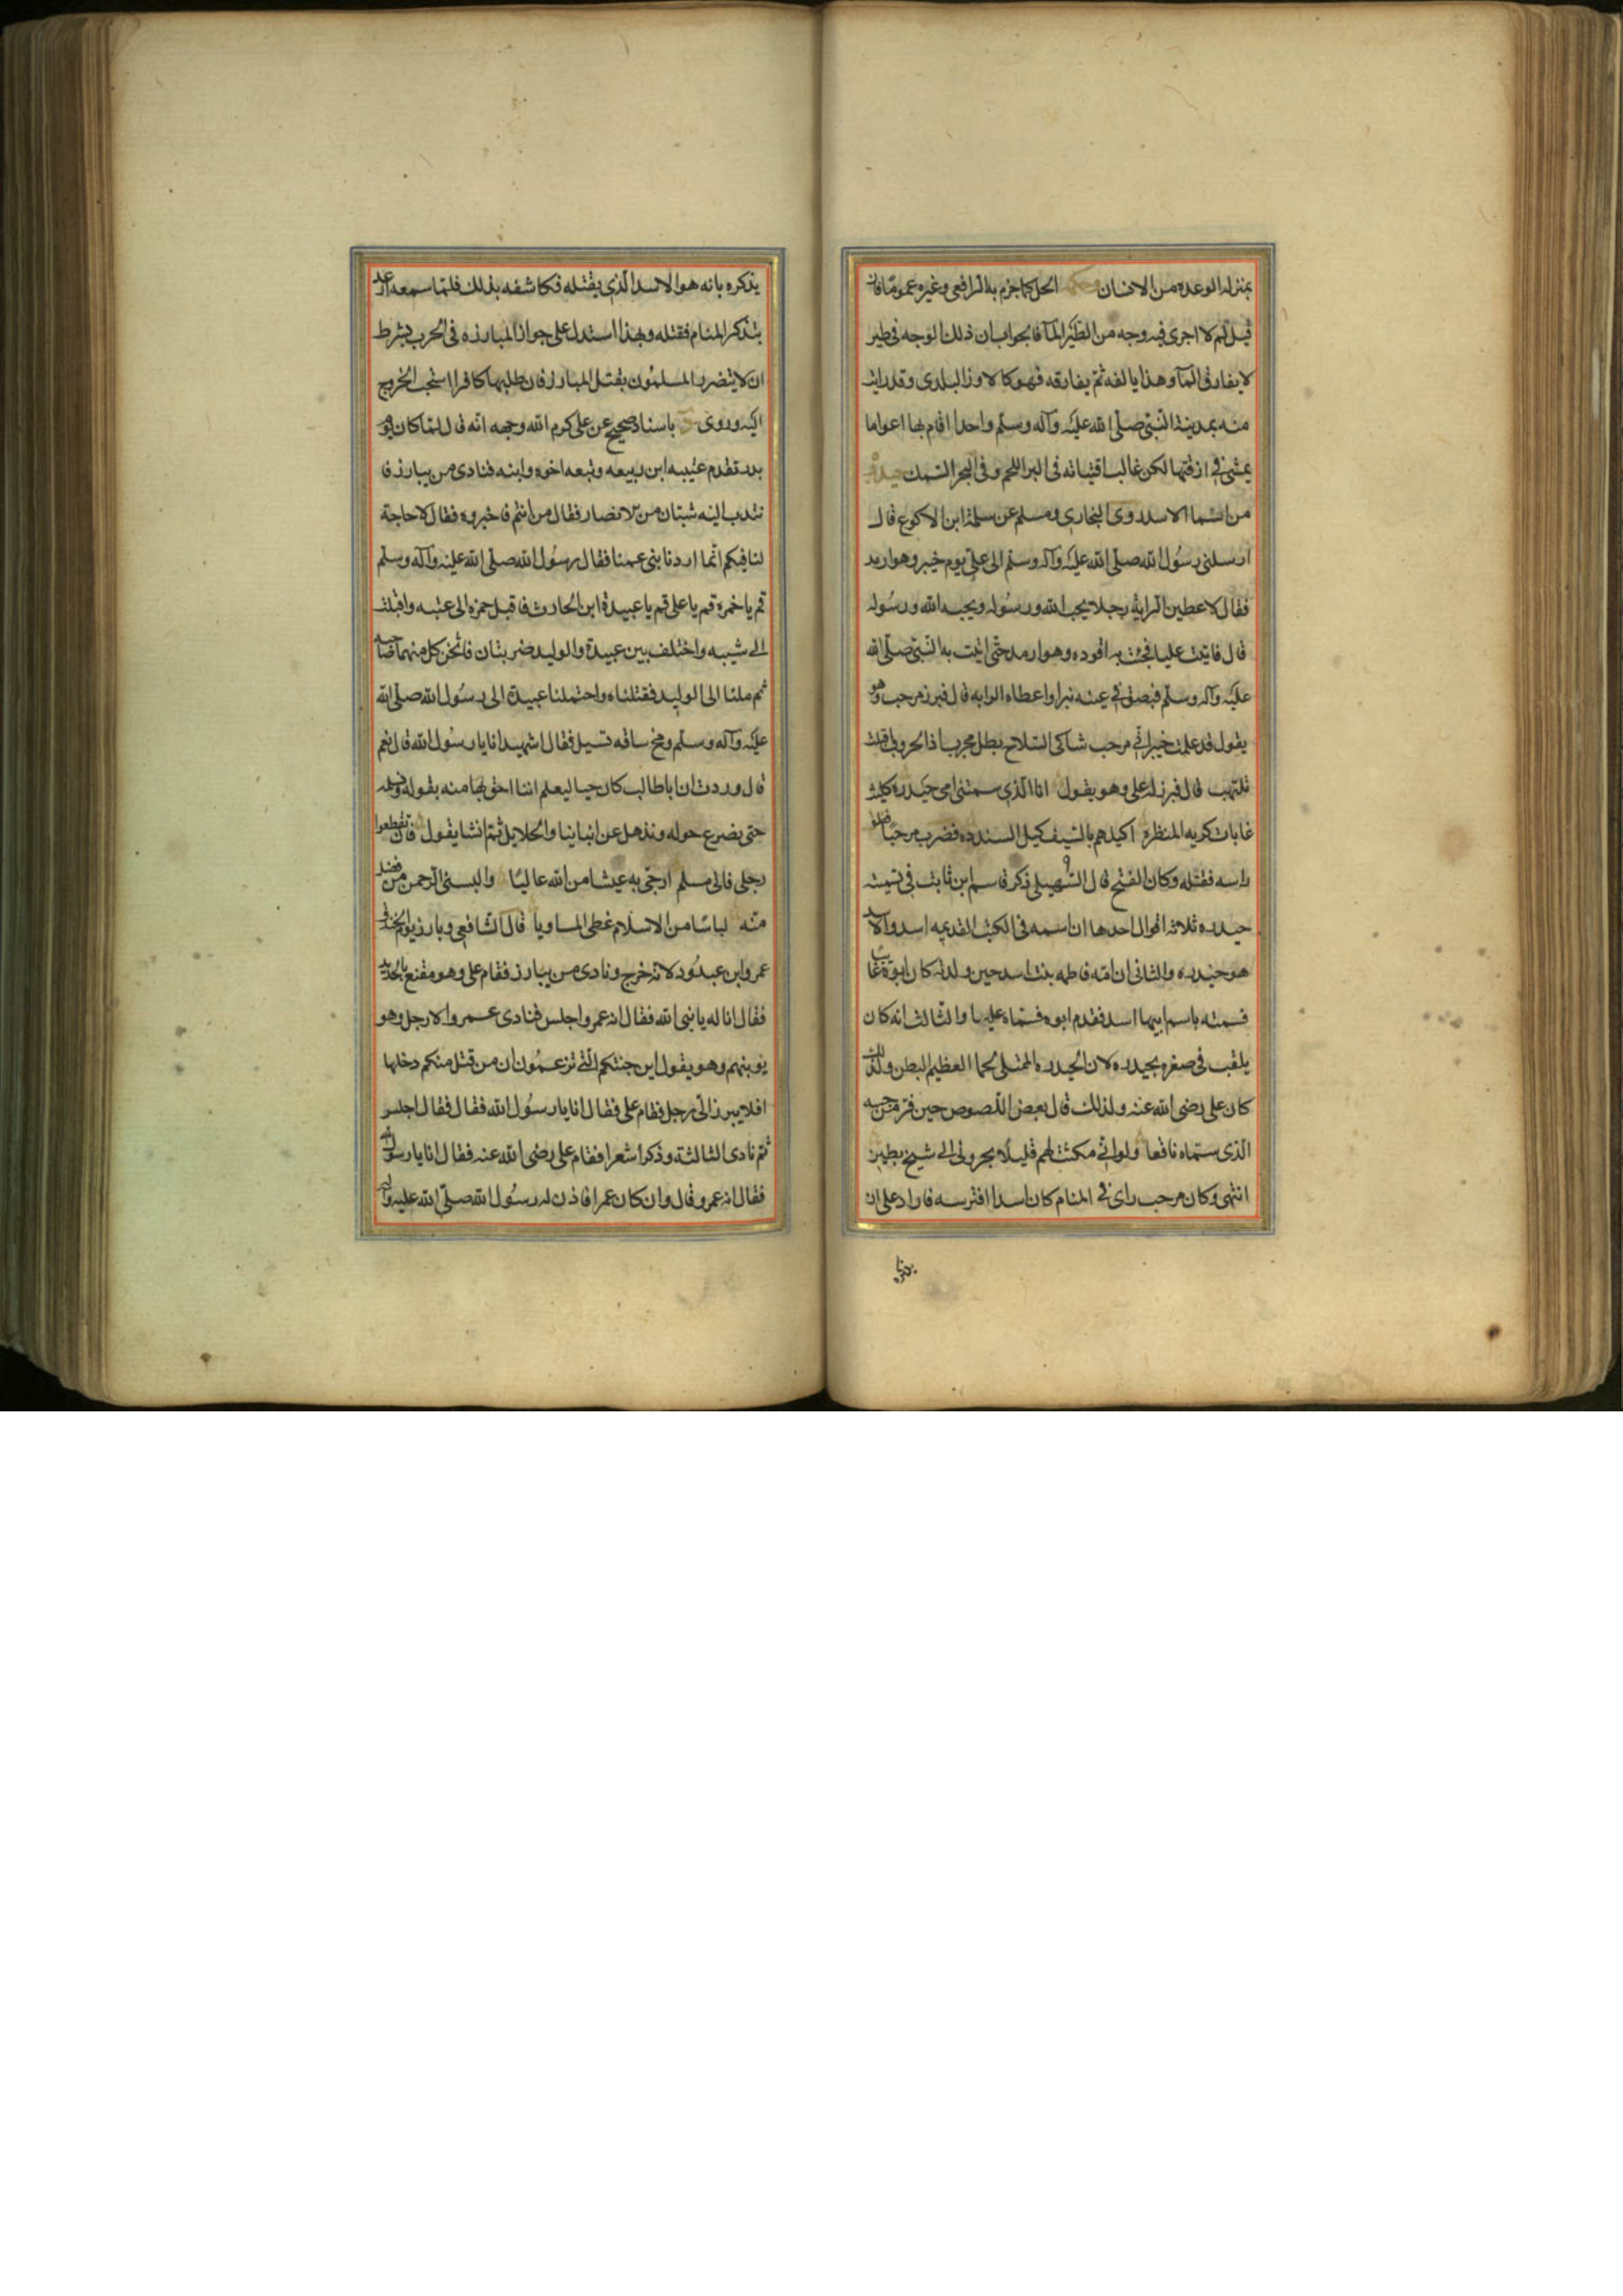 بمنزله الوعده من الانسان الحل كما جزم به الرافعى وغيره عموما فان
قيل لم لا اجرى فيه وجه من الطير المآ فالجواب ان ذلك الوجه فى طير
لا يفارق المآ وهذا يالفه ثم يفارقه فهو كالاوز البلدى وقد رايت
منه بمدينة النبى صلى الله عليه وآله وسلم واحدا اقام بها اعواما
يمشى فى ازقتها لكن غالب اقتياته فى البر اللحم وفى البحر السمك
من اسما الاسد روى البخارى ومسلم عن سلمة ابن الاكوع قال
ارسلنى رسول الله صلى الله عليه وآله وسلم الى على يوم خيبر وهو ارمد
فقال لاعطين الراية رجلا يحب الله ورسوله ويحبه الله ورسوله
قال فاتيت عليا فجئت به اقوده وهو ارمد حتى اتيت به النبى صلى الله
عليه وآله وسلم فبصق فى عينه فبرا واعطاه الرايه قال فبرز مرحب وهو
يقول قد علمت خيبر انى مرحب شاكى السلاح بطل مجرب اذا الحروب اقبلت
تلتهب قال فبرز له على وهو يقول انا الذى سمتنى امى حيدره كليث
غابات كريه المنظره اكيلهم بالسيف كيل السندره فضرب مرحبا ففلق
راسه فقتله وكان الفتح قال السهيلى ذكر قاسم ابن ثابت فى تسميته
حيدره ثلاثة اقوال احدها ان اسمه فى الكتب القديمه اسد والاسد
هو حيدره والثانى ان امه فاطمه بنت اسد حين ولدته كان ابوه غائبا
فسمته باسم ابيها اسد فقدم ابوه فسماه عليا والثالث انه كان
يلقب فى صغره بحيدره لان الحيدره الممتلى لحما العظيم البطن ولذلك
كان على رضى الله عنه ولذلك قال بعض اللصوص حين فر من حبسه
الذى سماه نافعا ولو انى مكثت لهم قليلا لجرونى الى شيخ بطين
انتهى وكان مرحب راى فى المنام كان اسدا افترسه فاراد على ان
يذكره
يذكره بانه هو الاسد الذى يقتله فكاشفه بذلك فلما سمعه ارعد
يتذكر المنام فقتله وبهذا استدل على جواز المبارزه فى الحرب بشرط
ان لا يتضرر المسلمون بقتل المبارز فان طلبها كافرا استحب الخروج
اليه وروى باسناد صحيح عن على كرم الله وجهه انه قال لما كان يوم
بدر تقدم عتيبه ابن ربيعه وتبعه اخوه وابنه فنادى من يبارز فا
نتدب اليه شبتان من الانصار فقال من انتم فاخبروه فقال لا حاجة
لنا فيكم انما اردنا بنى عمنا فقال رسول الله صلى الله عليه وآله وسلم
قم يا حمزه قم يا على قم يا عبيدة ابن الحارث فاقبل حمزه الى عتبه واقبلت
الى شيبه واختلف بين عبيدة والوليد ضربتان فاثخن كل منهما صاحبه
ثم ملنا الى الوليد فقتلناه واحتملنا عبيدة الى رسول الله صلى الله
عليه وآله وسلم ومخ ساقه تسيل فقال اشهيد انا يا رسول الله قال نعم
قال وددت ان اباطالب كان حيا ليعلم اننا احق بها منه بقوله ونسلمه
حتى نصرع حوله ونذهل عن ابنائنا والحلايل ثم انشا يقول فان تقطعوا
رجلى فانى مسلم ارجى به عيشا من الله عاليا والبسنى الرحمن من فضل
منه لباسا من الاسلام غطى المساويا قال الشافعى وبارز يوم الخندق
عمرو ابن عبدود لانه خرج ونادى من يبارز فقام على وهو مقنع بالحديد
فقال انا له يا نبى الله فقال انه عمرو اجلس فنادى عمرو الا رجل وهو
يوبنهم وهو يقول اين جنتكم التى تزعمون ان من قتل منكم دخلها
افلا يبرز الى رجل فقام على فقال انا يا رسول الله فقال فقال اجلس
ثم نادى الثالثة وذكر اشعرا فقام على رضى الله عنه فقال انا يا رسول الله
فقال انه عمرو قال وان كان عمرا فاذن له رسول الله صلى الله عليه وآله